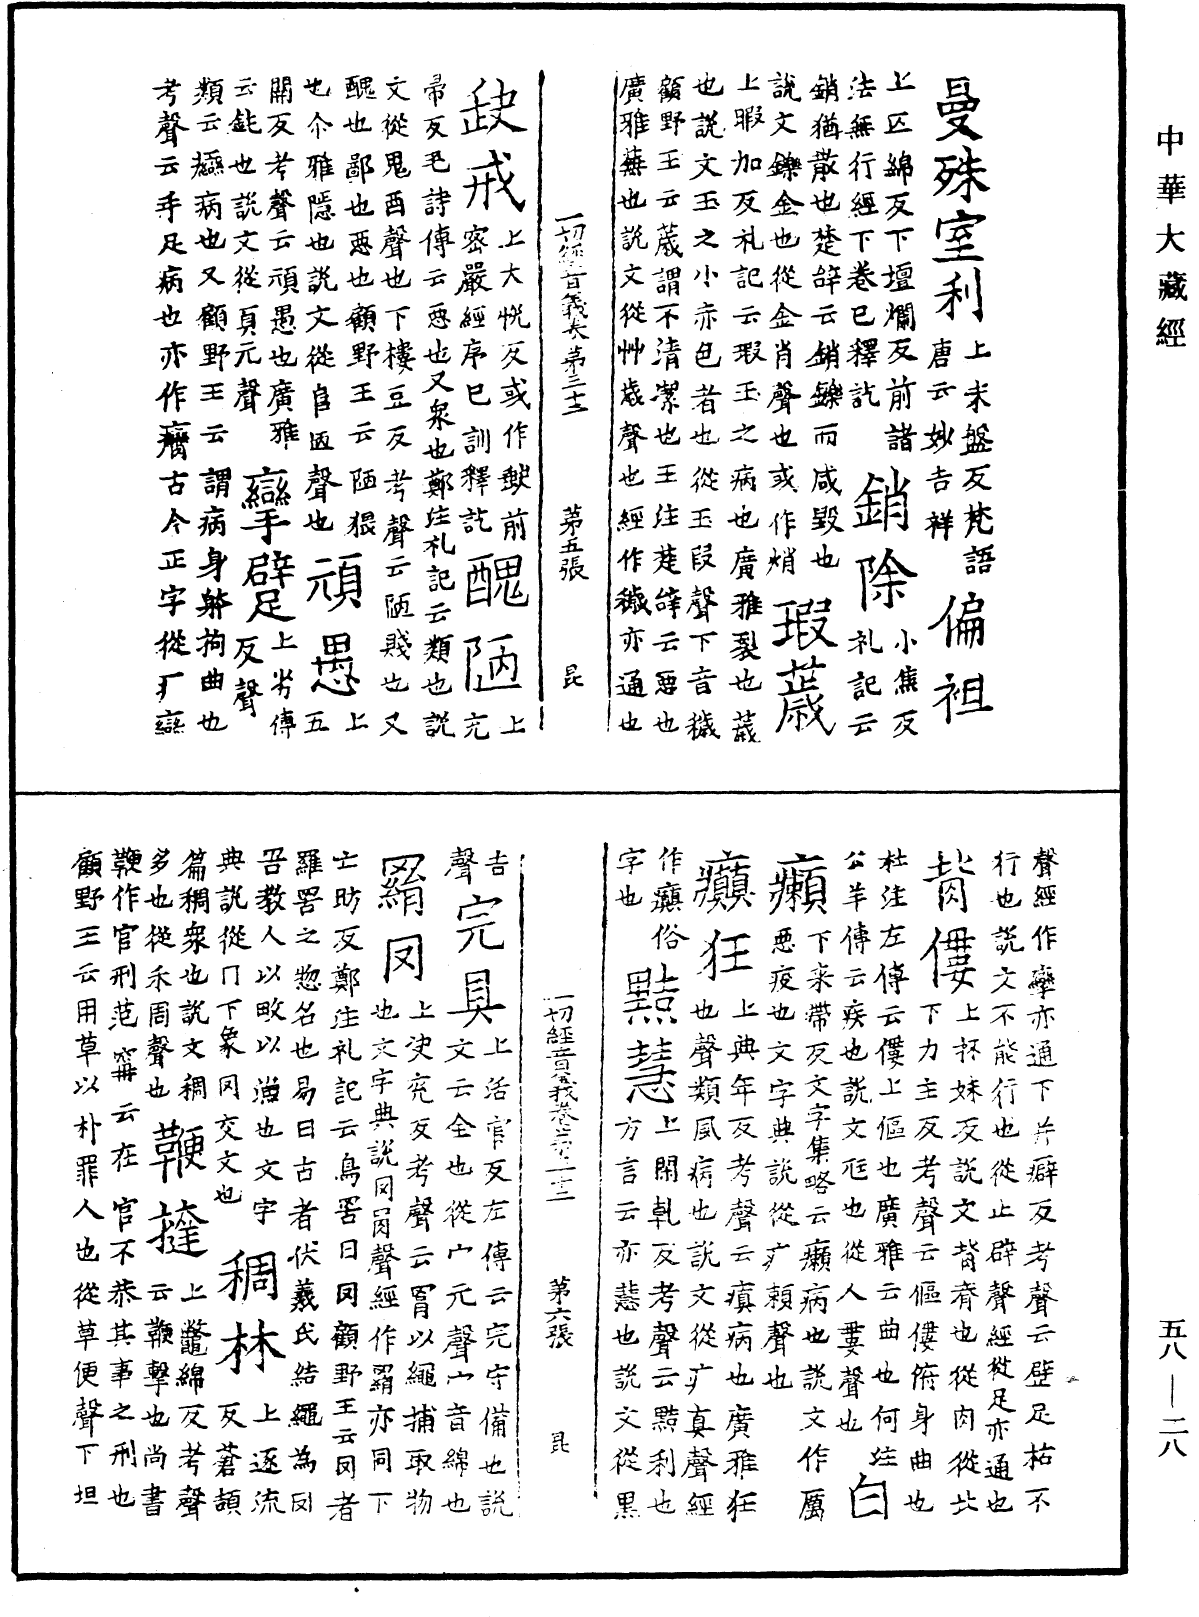 中華大藏經
曼殊室利上末盤反梵語唐云妙吉祥偏袒
上匹綿反下壇爛反前諸法無行經下卷已釋訖銷除小焦反礼記云
銷猶散也楚辞云銷鑠而咸毀也
說文鑠金也從金肖聲也或作焇瑕薉
上暇加反礼記云瑕玉之病也廣雅裂也薉
也說文玉之小赤色者也從玉叚聲下音穢
顧野王云薉謂不清潔也王注楚辞云惡也
廣雅蕪也說文從艸歲聲也經作穢亦通也
一切經音義卷第三十二 第五張 昆
缺戒上大悅反或作缺前密嚴經序已訓釋訖醜陋上充
帚反毛詩傳云惡也又衆也鄭注礼記云類也說
文從鬼酉聲也下樓豆反考聲云陋賤也又
醜也鄙也惡也顧野王云陋猥
也尒雅隱也說文從𨸏㔷聲也頑愚上五
關反考聲云頑愚也廣雅
云鈍也說文從頁元聲攣躄上劣傳反聲
類云攣病也又顧野王云謂病身躰拘曲也
考聲云手足病也亦作癵古今正字從疒䜌
聲經作攣亦通下并癖反考聲云躄足枯不
行也說文不能行也從止辟聲經從足亦通也
背僂上杯妹反說文背脊也從肉從北
下力主反考聲云傴僂俯身曲也
杜注左傳云僂上傴也廣雅云曲也何注
公羊傳云疾也說文尫也從人婁聲也白
癩下來帶反文字集略云癩病也說文作厲
惡疾也文字典說從疒賴聲也
癲狂上典年反考聲云瘨病也廣雅狂
也聲類風病也說文從疒真聲經
作癲俗字也黠慧上閑軋反考聲云黠利也
方言云亦慧也說文從黑
吉聲
一切經音義卷第三十二 第六張 昆
完具上活官反左傳云完守備也說
文云全也從宀元聲宀音綿也
羂罔上決兖反考聲云罥以繩捕取物
也文字典說罔肙聲經作羂亦同下
亡昉反鄭注礼記云鳥罟曰罔顧野王云罔者
羅罟之惣名也易曰古者伏羲氏結繩為罔
罟教人以畋以漁也文字
典說從冂下象罔交文也稠林上逐流反蒼頡
篇稠衆也說文稠
多也從禾周聲也鞭撻上鼈綿反考聲
云鞭擊也尚書
鞭作官刑范甯云在官不恭其事之刑也
顧野王云用革以朴罪人也從革便聲下坦
五八—二八